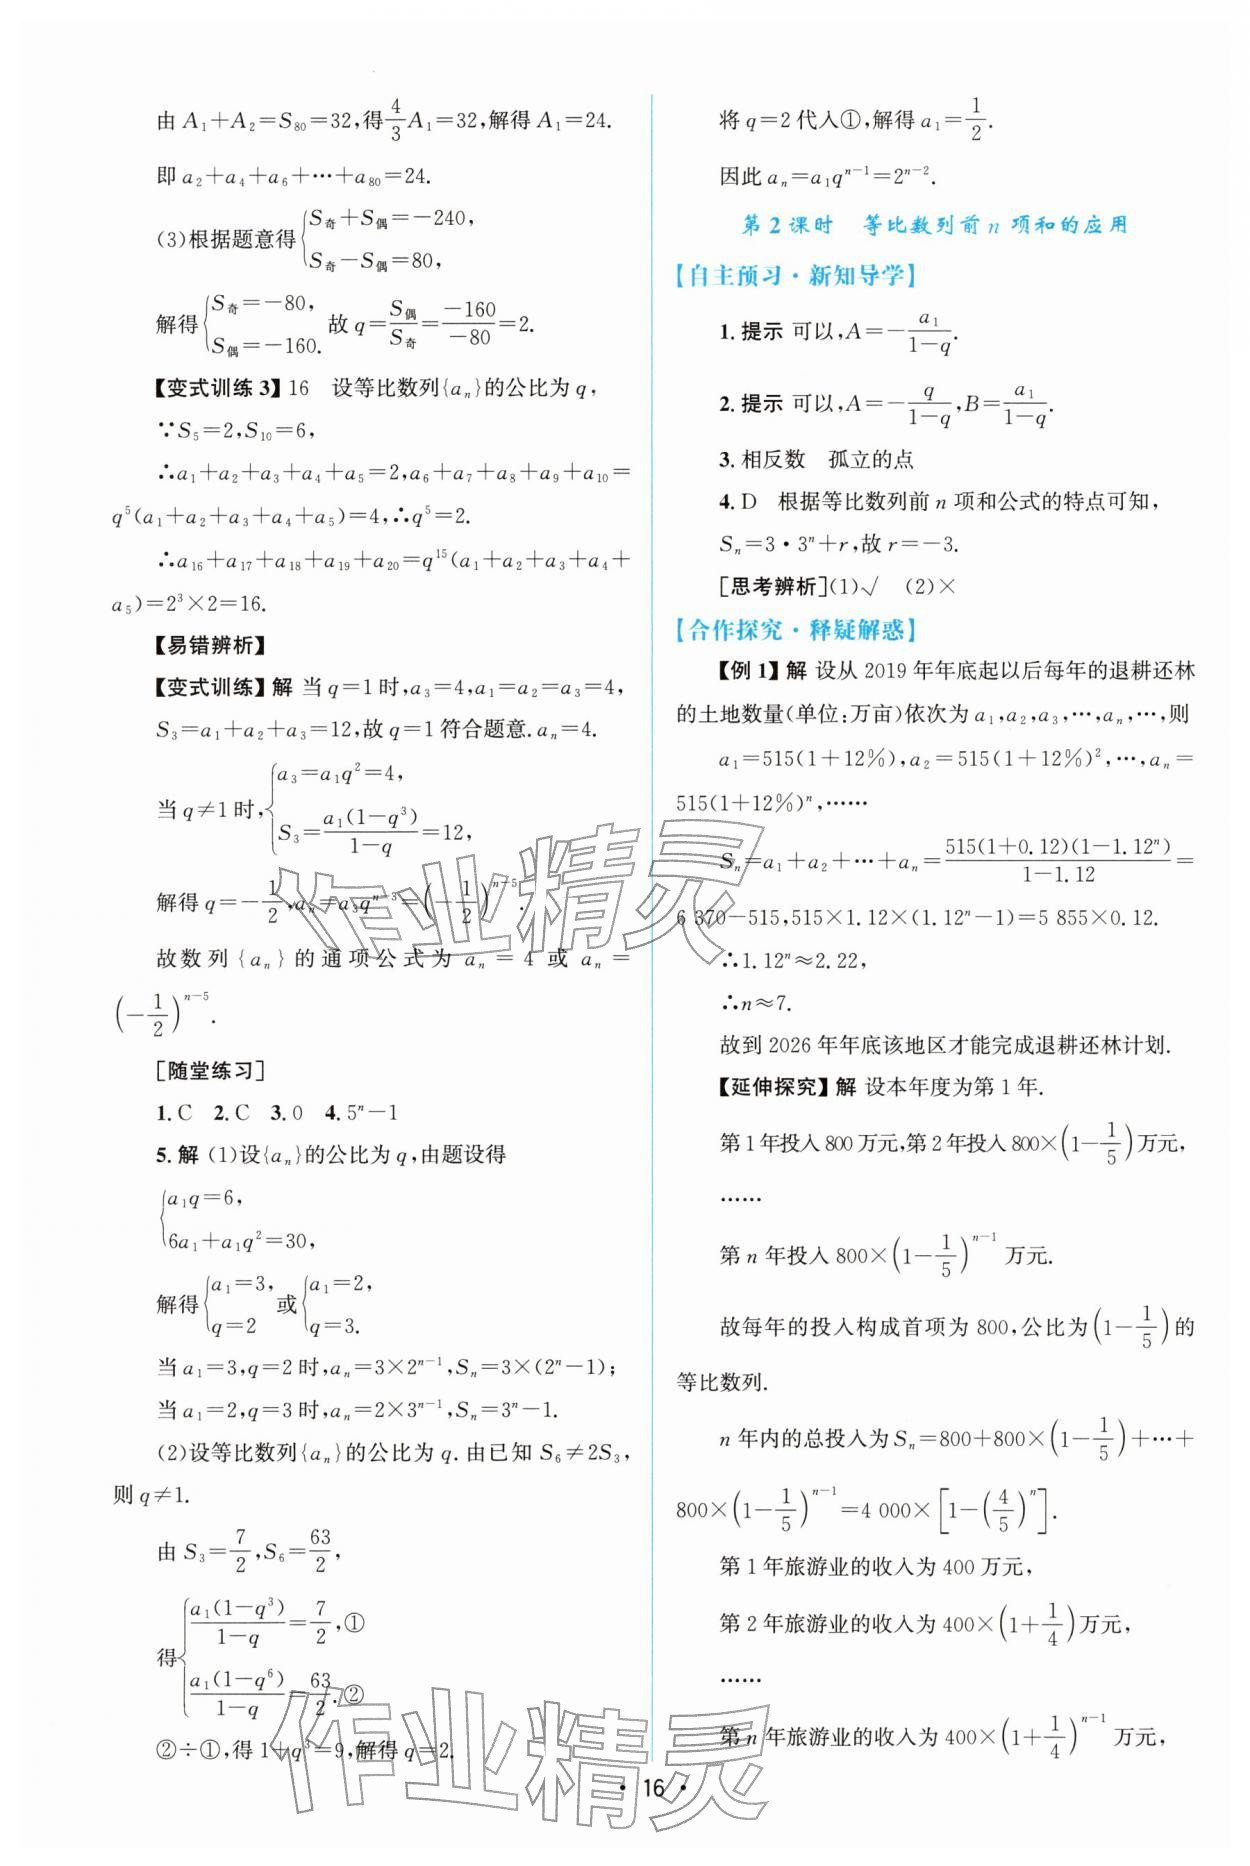 由 A₁+A₂=S₈₀=32,得4/3 A₁=32,解得 A₁=24.
即 a₂+a₄+a₆+⋯+a₈₀=24.
(3)根据题意得{S奇+S偶=-240,
S奇-S偶=80,
解得{S奇=-80,
S偶=-160.
故 q=S偶/S奇=-160/-80=2.
【变式训练 3】16 设等比数列{aₙ}的公比为 q,
∵S₅=2,S₁₀=6,
∴a₁+a₂+a₃+a₄+a₅=2,a₆+a₇+a₈+a₉+a₁₀=
q⁵(a₁+a₂+a₃+a₄+a₅)=4,∴q⁵=2.
∴a₁₆+a₁₇+a₁₈+a₁₉+a₂₀=q¹⁵(a₁+a₂+a₃+a₄+
a₅)=2³×2=16.
【易错辨析】
【变式训练】解 当 q=1 时,a₃=4,a₁=a₂=a₃=4,
S₃=a₁+a₂+a₃=12,故 q=1 符合题意.aₙ=4.
当 q≠1 时,{a₃=a₁q²=4,
S₃=a₁(1-q³)/(1-q)=12,
解得 q=-1/2,aₙ=a₃qⁿ⁻³=(-1/2)ⁿ⁻⁵.
故数列{aₙ}的通项公式为 aₙ=4 或 aₙ=
(-1/2)ⁿ⁻⁵.
[随堂练习]
1.C 2.C 3.0 4.5ⁿ-1
5.解 (1)设{aₙ}的公比为 q,由题设得
{a₁q=6,
6a₁+a₁q²=30,
解得{a₁=3,
q=2
或{a₁=2,
q=3.
当 a₁=3,q=2 时,aₙ=3×2ⁿ⁻¹,Sₙ=3×(2ⁿ-1);
当 a₁=2,q=3 时,aₙ=2×3ⁿ⁻¹,Sₙ=3ⁿ-1.
(2)设等比数列{aₙ}的公比为 q.由已知 S₆≠2S₃,
则 q≠1.
由 S₃=7/2,S₆=63/2,
得{a₁(1-q³)/(1-q)=7/2,①
a₁(1-q⁶)/(1-q)=63/2.②
②÷①,得 1+q³=9,解得 q=2.
将 q=2 代入①,解得 a₁=1/2.
因此 aₙ=a₁qⁿ⁻¹=2ⁿ⁻².
第 2 课时 等比数列前 n 项和的应用
【自主预习·新知导学】
1.提示 可以,A=-a₁/(1-q).
2.提示 可以,A=-q/(1-q),B=a₁/(1-q).
3.相反数 孤立的点
4.D 根据等比数列前 n 项和公式的特点可知,
Sₙ=3·3ⁿ+r,故 r=-3.
[思考辨析](1)√ (2)×
【合作探究·释疑解惑】
【例 1】解 设从 2019 年年底起以后每年的退耕还林
的土地数量(单位:万亩)依次为 a₁,a₂,a₃,⋯,aₙ,⋯,则
a₁=515(1+12%),a₂=515(1+12%)²,⋯,aₙ=
515(1+12%)ⁿ,⋯⋯
Sₙ=a₁+a₂+⋯+aₙ=515(1+0.12)(1-1.12ⁿ)/(1-1.12)=
6 370-515,515×1.12×(1.12ⁿ-1)=5 855×0.12.
∴1.12ⁿ≈2.22,
∴n≈7.
故到 2026 年年底该地区才能完成退耕还林计划.
【延伸探究】解 设本年度为第 1 年.
第 1 年投入 800 万元,第 2 年投入 800×(1-1/5)万元,
⋯⋯
第 n 年投入 800×(1-1/5)ⁿ⁻¹ 万元.
故每年的投入构成首项为 800,公比为(1-1/5)的
等比数列.
n 年内的总投入为 Sₙ=800+800×(1-1/5)+⋯+
800×(1-1/5)ⁿ⁻¹=4 000×[1-(4/5)ⁿ].
第 1 年旅游业的收入为 400 万元,
第 2 年旅游业的收入为 400×(1+1/4)万元,
⋯⋯
第 n 年旅游业的收入为 400×(1+1/4)ⁿ⁻¹ 万元,
·16·
作业精灵
作业精灵